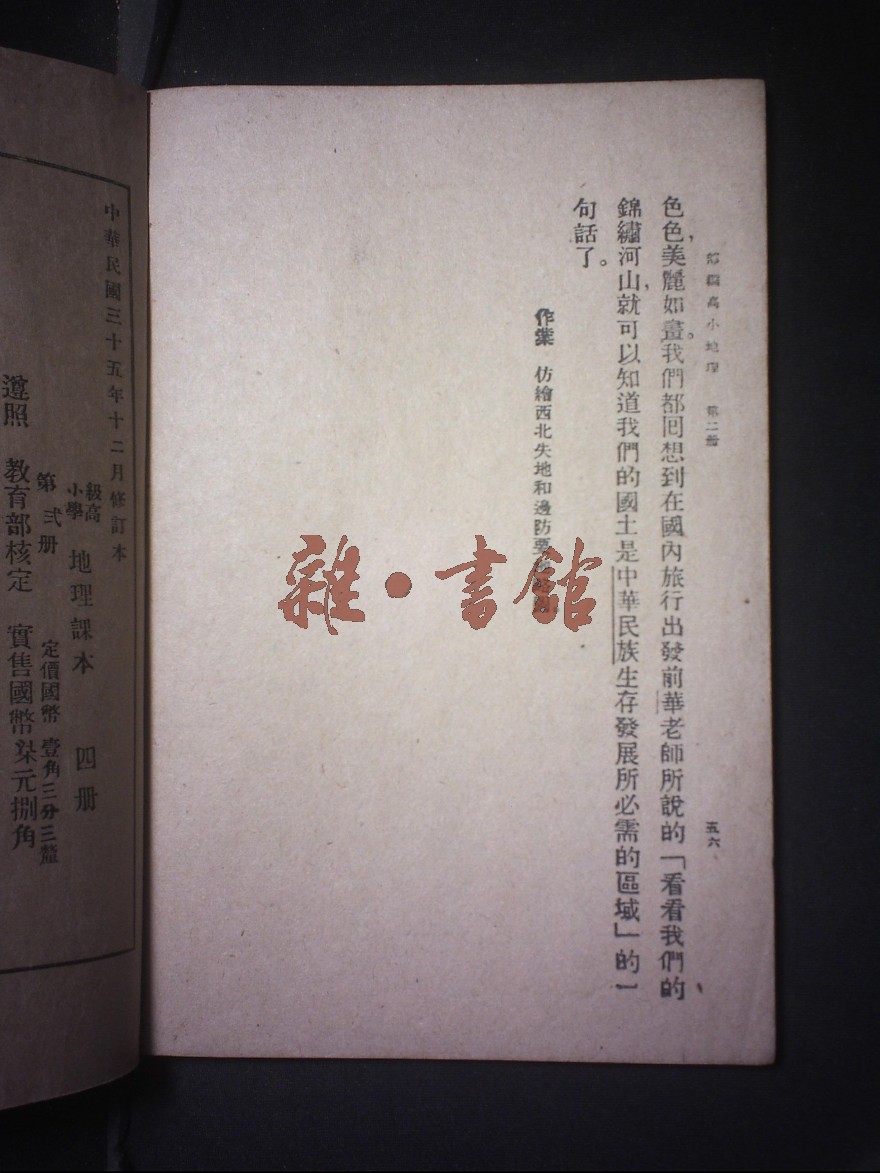 高小地理 第二册
五六
色色,美麗如畫。我們都回想到在國內旅行出發前華老師所說的「看看我們的
錦繡河山,就可以知道我們的國土是中華民族生存發展所必需的區域」的一
句話了。
作業 仿繪西北失地和邊防要
雜·書館
中華民國三十五年十二月修訂本
高級小學 地理課本 四册
第弍册 定價國幣壹角三分三釐
遵照 教育部核定 實售國幣柒元捌角